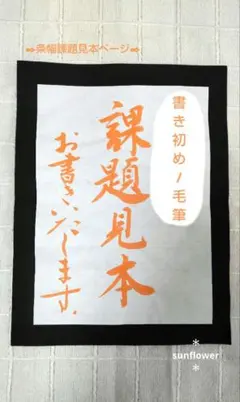 ⇨条幅課題見本ページ⇨
書き初め/毛筆
課題見本
お書きいたします。
*
sunflower
*